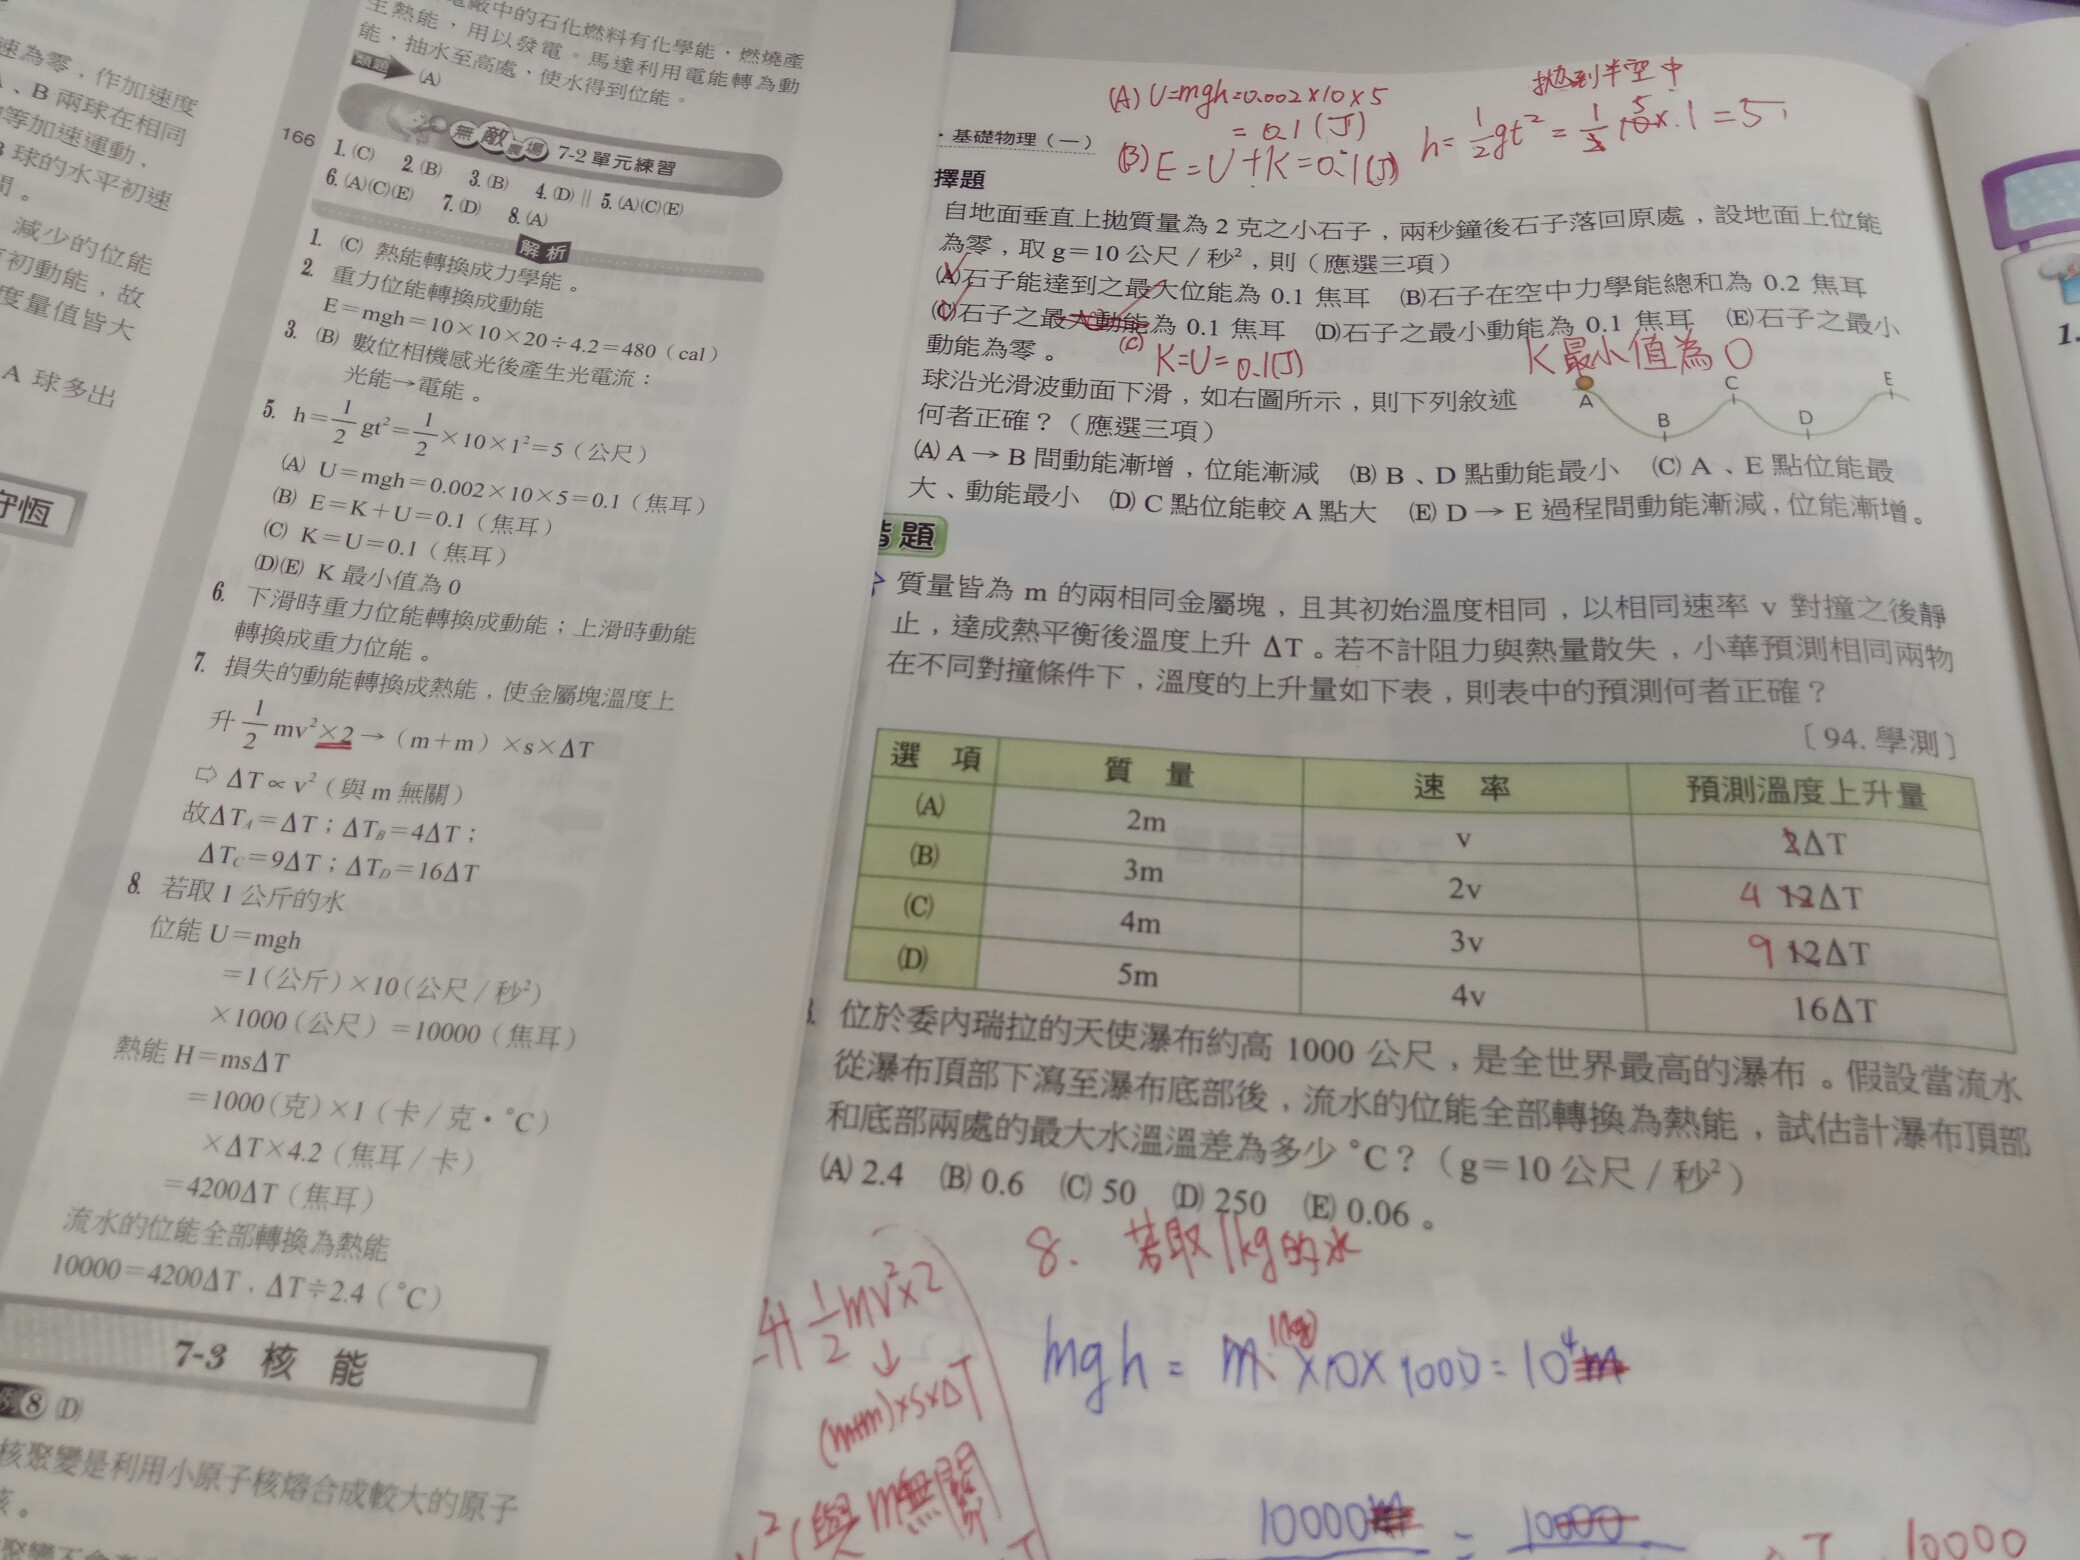 速為零，作加速度
、B 兩球在相同
等加速運動，
球的水平初速
間。
減少的位能
初動能，故
度量值皆大
A 球多出
守恆
電廠中的石化燃料有化學能，燃燒產
生熱能，用以發電。馬達利用電能轉為動
能，抽水至高處，使水得到位能。
類題 (A)
無敵農場 7-2 單元練習
166
1. (C) 2. (B) 3. (B) 4. (D) ‖ 5. (A)(C)(E)
6. (A)(C)(E) 7. (D) 8. (A)
解析
1. (C) 熱能轉換成力學能。
2. 重力位能轉換成動能
E＝mgh＝10×10×20÷4.2＝480（cal）
3. (B) 數位相機感光後產生光電流：
光能→電能。
5. h＝1/2 gt²＝1/2×10×1²＝5（公尺）
(A) U＝mgh＝0.002×10×5＝0.1（焦耳）
(B) E＝K＋U＝0.1（焦耳）
(C) K＝U＝0.1（焦耳）
(D)(E) K 最小值為 0
6. 下滑時重力位能轉換成動能；上滑時動能
轉換成重力位能。
7. 損失的動能轉換成熱能，使金屬塊溫度上
升 1/2 mv²×2→（m＋m）×s×ΔT
⇨ ΔT∝v²（與 m 無關）
故ΔT_A＝ΔT；ΔT_B＝4ΔT；
ΔT_C＝9ΔT；ΔT_D＝16ΔT
8. 若取 1 公斤的水
位能 U＝mgh
＝1(公斤)×10(公尺／秒²)
×1000(公尺)＝10000（焦耳）
熱能 H＝msΔT
＝1000(克)×1（卡／克・℃）
×ΔT×4.2（焦耳／卡）
＝4200ΔT（焦耳）
流水的位能全部轉換為熱能
10000＝4200ΔT，ΔT≑2.4（℃）
7-3 核能
例8 (D)
核聚變是利用小原子核熔合成較大的原子
核。
(A) U=mgh=0.002×10×5
= 0.1 (J)
(B) E=U+K=0.1(J)
拋到半空中
h=1/2gt²=1/2 10×1=5
5
・基礎物理（一）
擇題
自地面垂直上拋質量為 2 克之小石子，兩秒鐘後石子落回原處，設地面上位能
為零，取 g＝10 公尺／秒²，則（應選三項）
(A)石子能達到之最大位能為 0.1 焦耳 (B)石子在空中力學能總和為 0.2 焦耳
(C)石子之最大動能為 0.1 焦耳 (D)石子之最小動能為 0.1 焦耳 (E)石子之最小
動能為零。
(C) K=U=0.1(J)
K最小值為0
球沿光滑波動面下滑，如右圖所示，則下列敘述
何者正確？（應選三項）
A B C D E
(A) A→B 間動能漸增，位能漸減 (B) B、D 點動能最小 (C) A、E 點位能最
大、動能最小 (D) C 點位能較 A 點大 (E) D→E 過程間動能漸減，位能漸增。
題
質量皆為 m 的兩相同金屬塊，且其初始溫度相同，以相同速率 v 對撞之後靜
止，達成熱平衡後溫度上升 ΔT。若不計阻力與熱量散失，小華預測相同兩物
在不同對撞條件下，溫度的上升量如下表，則表中的預測何者正確？
〔94. 學測〕
選項 質量 速率 預測溫度上升量
(A) 2m v 2ΔT
(B) 3m 2v 4 12ΔT
(C) 4m 3v 9 12ΔT
(D) 5m 4v 16ΔT
位於委內瑞拉的天使瀑布約高 1000 公尺，是全世界最高的瀑布。假設當流水
從瀑布頂部下瀉至瀑布底部後，流水的位能全部轉換為熱能，試估計瀑布頂部
和底部兩處的最大水溫溫差為多少℃？（g＝10 公尺／秒²）
(A) 2.4 (B) 0.6 (C) 50 (D) 250 (E) 0.06。
8. 若取1kg的水
升 1/2mv²×2
↓
(m+m)×s×ΔT
v²(與m無關
mgh = m×10×1000=10⁴m
1(kg)
10000m = 10000
10000
1.